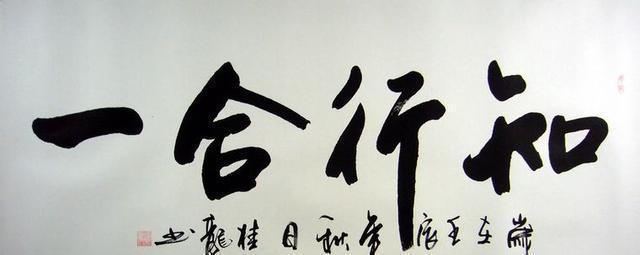 知行合一
歲在壬辰年秋日桂龍书